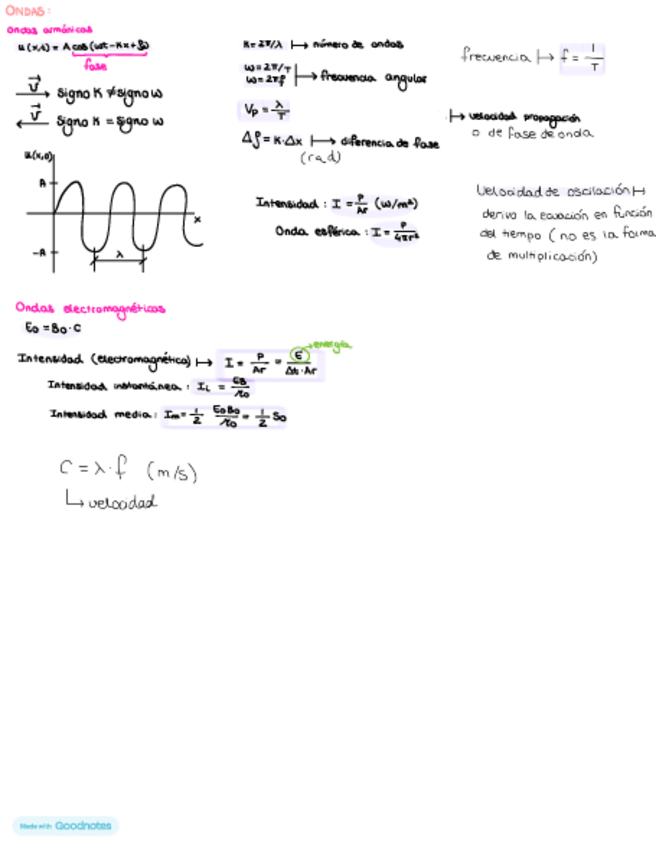 ONDAS:
Ondas armónicas
u(x,t) = A cos(ωt-Kx+φ₀)
fase
v⃗ → signo K ≠ signo ω
v⃗ ← signo K = signo ω
u(x,0)
A
-A
x
λ
K = 2π/λ ↦ número de ondas
ω = 2π/T
ω = 2πf ↦ frecuencia angular
Vp = λ/T ↦ velocidad propagación
o de fase de onda
Δφ = K·Δx ↦ diferencia de fase
(rad)
frecuencia ↦ f = 1/T
Intensidad : I = P/Ar (w/m²)
Onda esférica : I = P/4πr²
Velocidad de oscilación ↦
derivo la ecuación en función
del tiempo ( no es la forma
de multiplicación)
Ondas electromagnéticas
E₀ = B₀·C
Intensidad (electromagnética) ↦ I = P/Ar = E/Δt·Ar
energía
Intensidad instantánea : I_L = EB/μ₀
Intensidad media : Im = 1/2 E₀B₀/μ₀ = 1/2 S₀
C = λ·f (m/s)
↳ velocidad
Made with Goodnotes